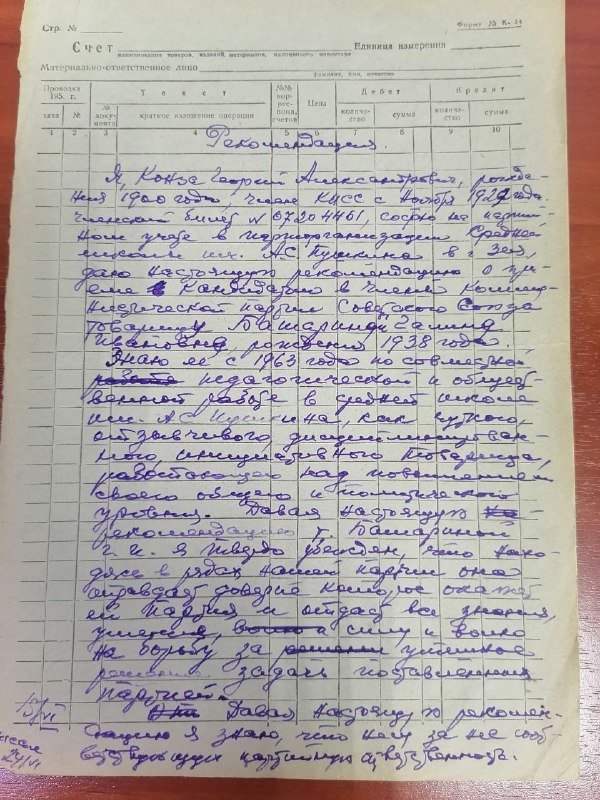 Стр. № Форма № К-14
Счет Единица измерения
наименование товаров, изделий, материалов, малоценного инвентаря
Материально-ответственное лицо
фамилия, имя, отчество
Проводка 195 г. Текст №№ кор-респонд. счетов Цена Дебет Кредит
дата № № документа краткое изложение операции количе-ство сумма количе-ство сумма
1 2 3 4 5 6 7 8 9 10
Рекомендация.
Я, Конза Георгий Александрович, рожде-
ния 1900 года, член КПСС с Ноября 1929 года.
членский билет N 07204461, состою на партий-
ном учете в парторганизации Средней
школы им. А.С. Пушкина в г. Зея,
даю настоящую рекомендацию о при-
еме в кандидаты в члены Комму-
нистической партии Советского Союза
товарищу Батариной Галине
Ивановне рождения 1938 года.
Знаю ее с 1963 года по совместной
работе педагогической и общест-
венной работе в средней школе
им. А.С. Пушкина, как чуткого,
отзывчивого дисциплинирован-
ного инициативного товарища,
работающего над повышением
своего общего и политического
уровня. Давая настоящую
рекомендацию т. Батариной
Г. И. я твердо убежден, что нахо-
дясь в рядах нашей партии она
оправдает доверие которое окажет
ей партия и отдаст все знания,
умения, силу и волю
на борьбу за решении успешное
решение задач поставленных
партией.
Давая настоящую рекомен-
дацию я знаю, что несу за нее соот-
ветствующую партийную ответственность.